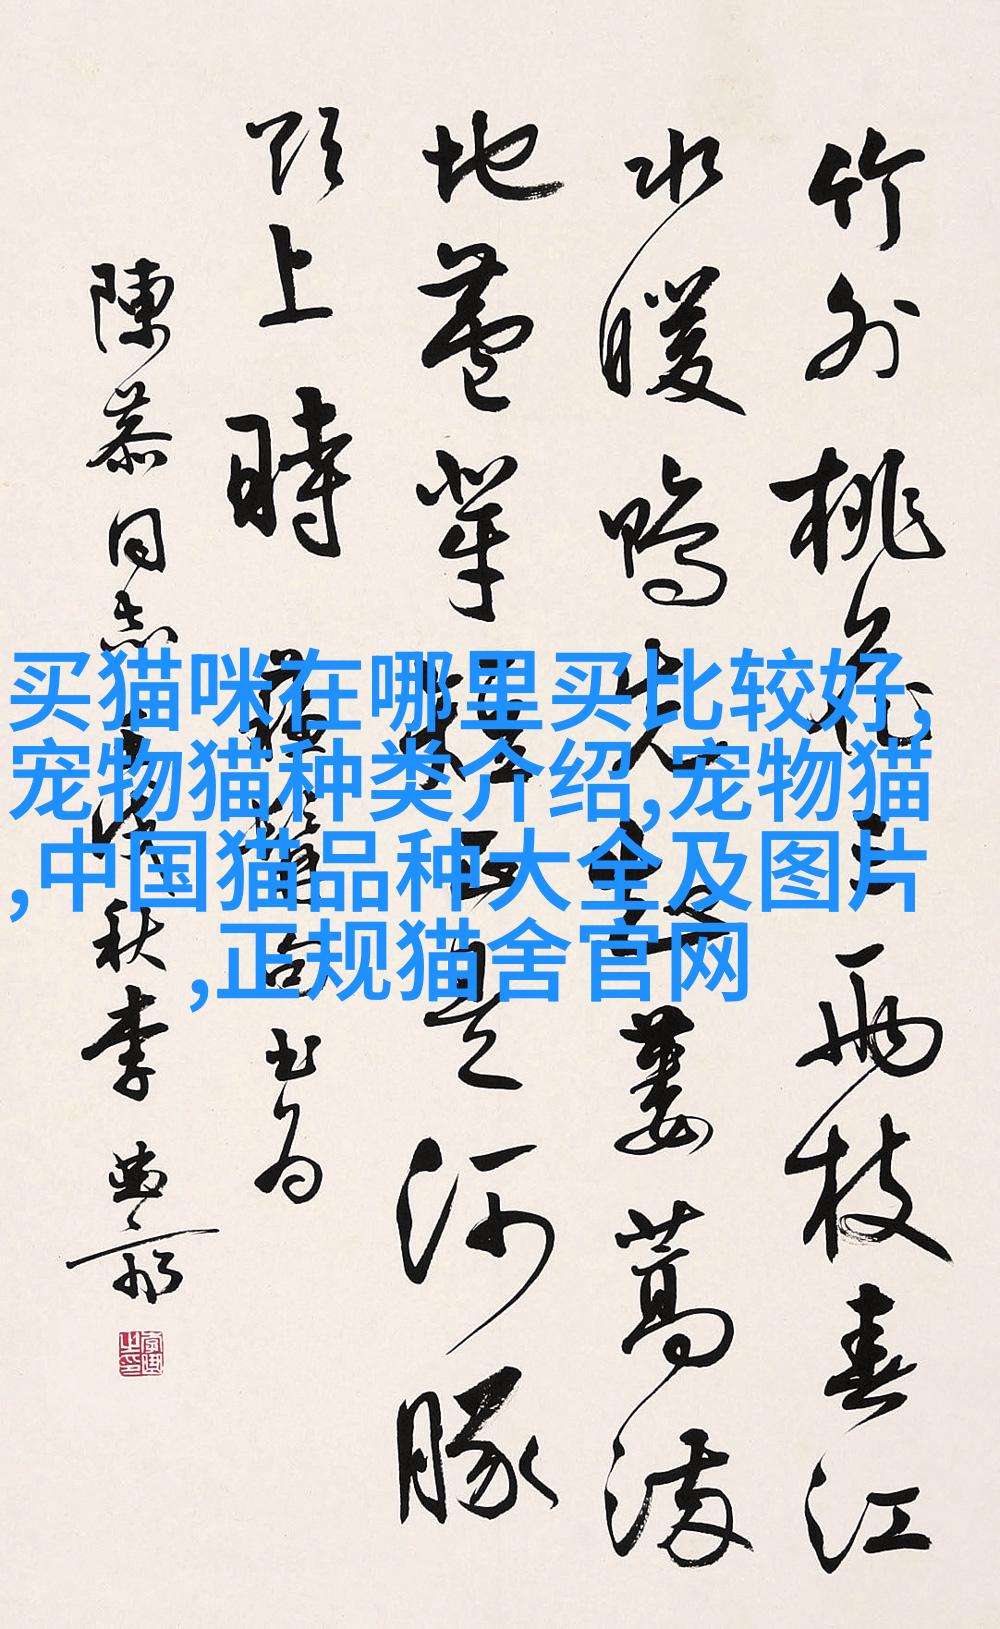 买猫咪在哪里买比较好,
宠物猫种类介绍,宠物猫
,中国猫品种大全及图片
,正规猫舍官网
竹外桃花三兩枝春江
水暖鴨先知蔞蒿滿
地蘆芽短正是河豚
欲上時
蘇 句书为
陳 同志 秋李